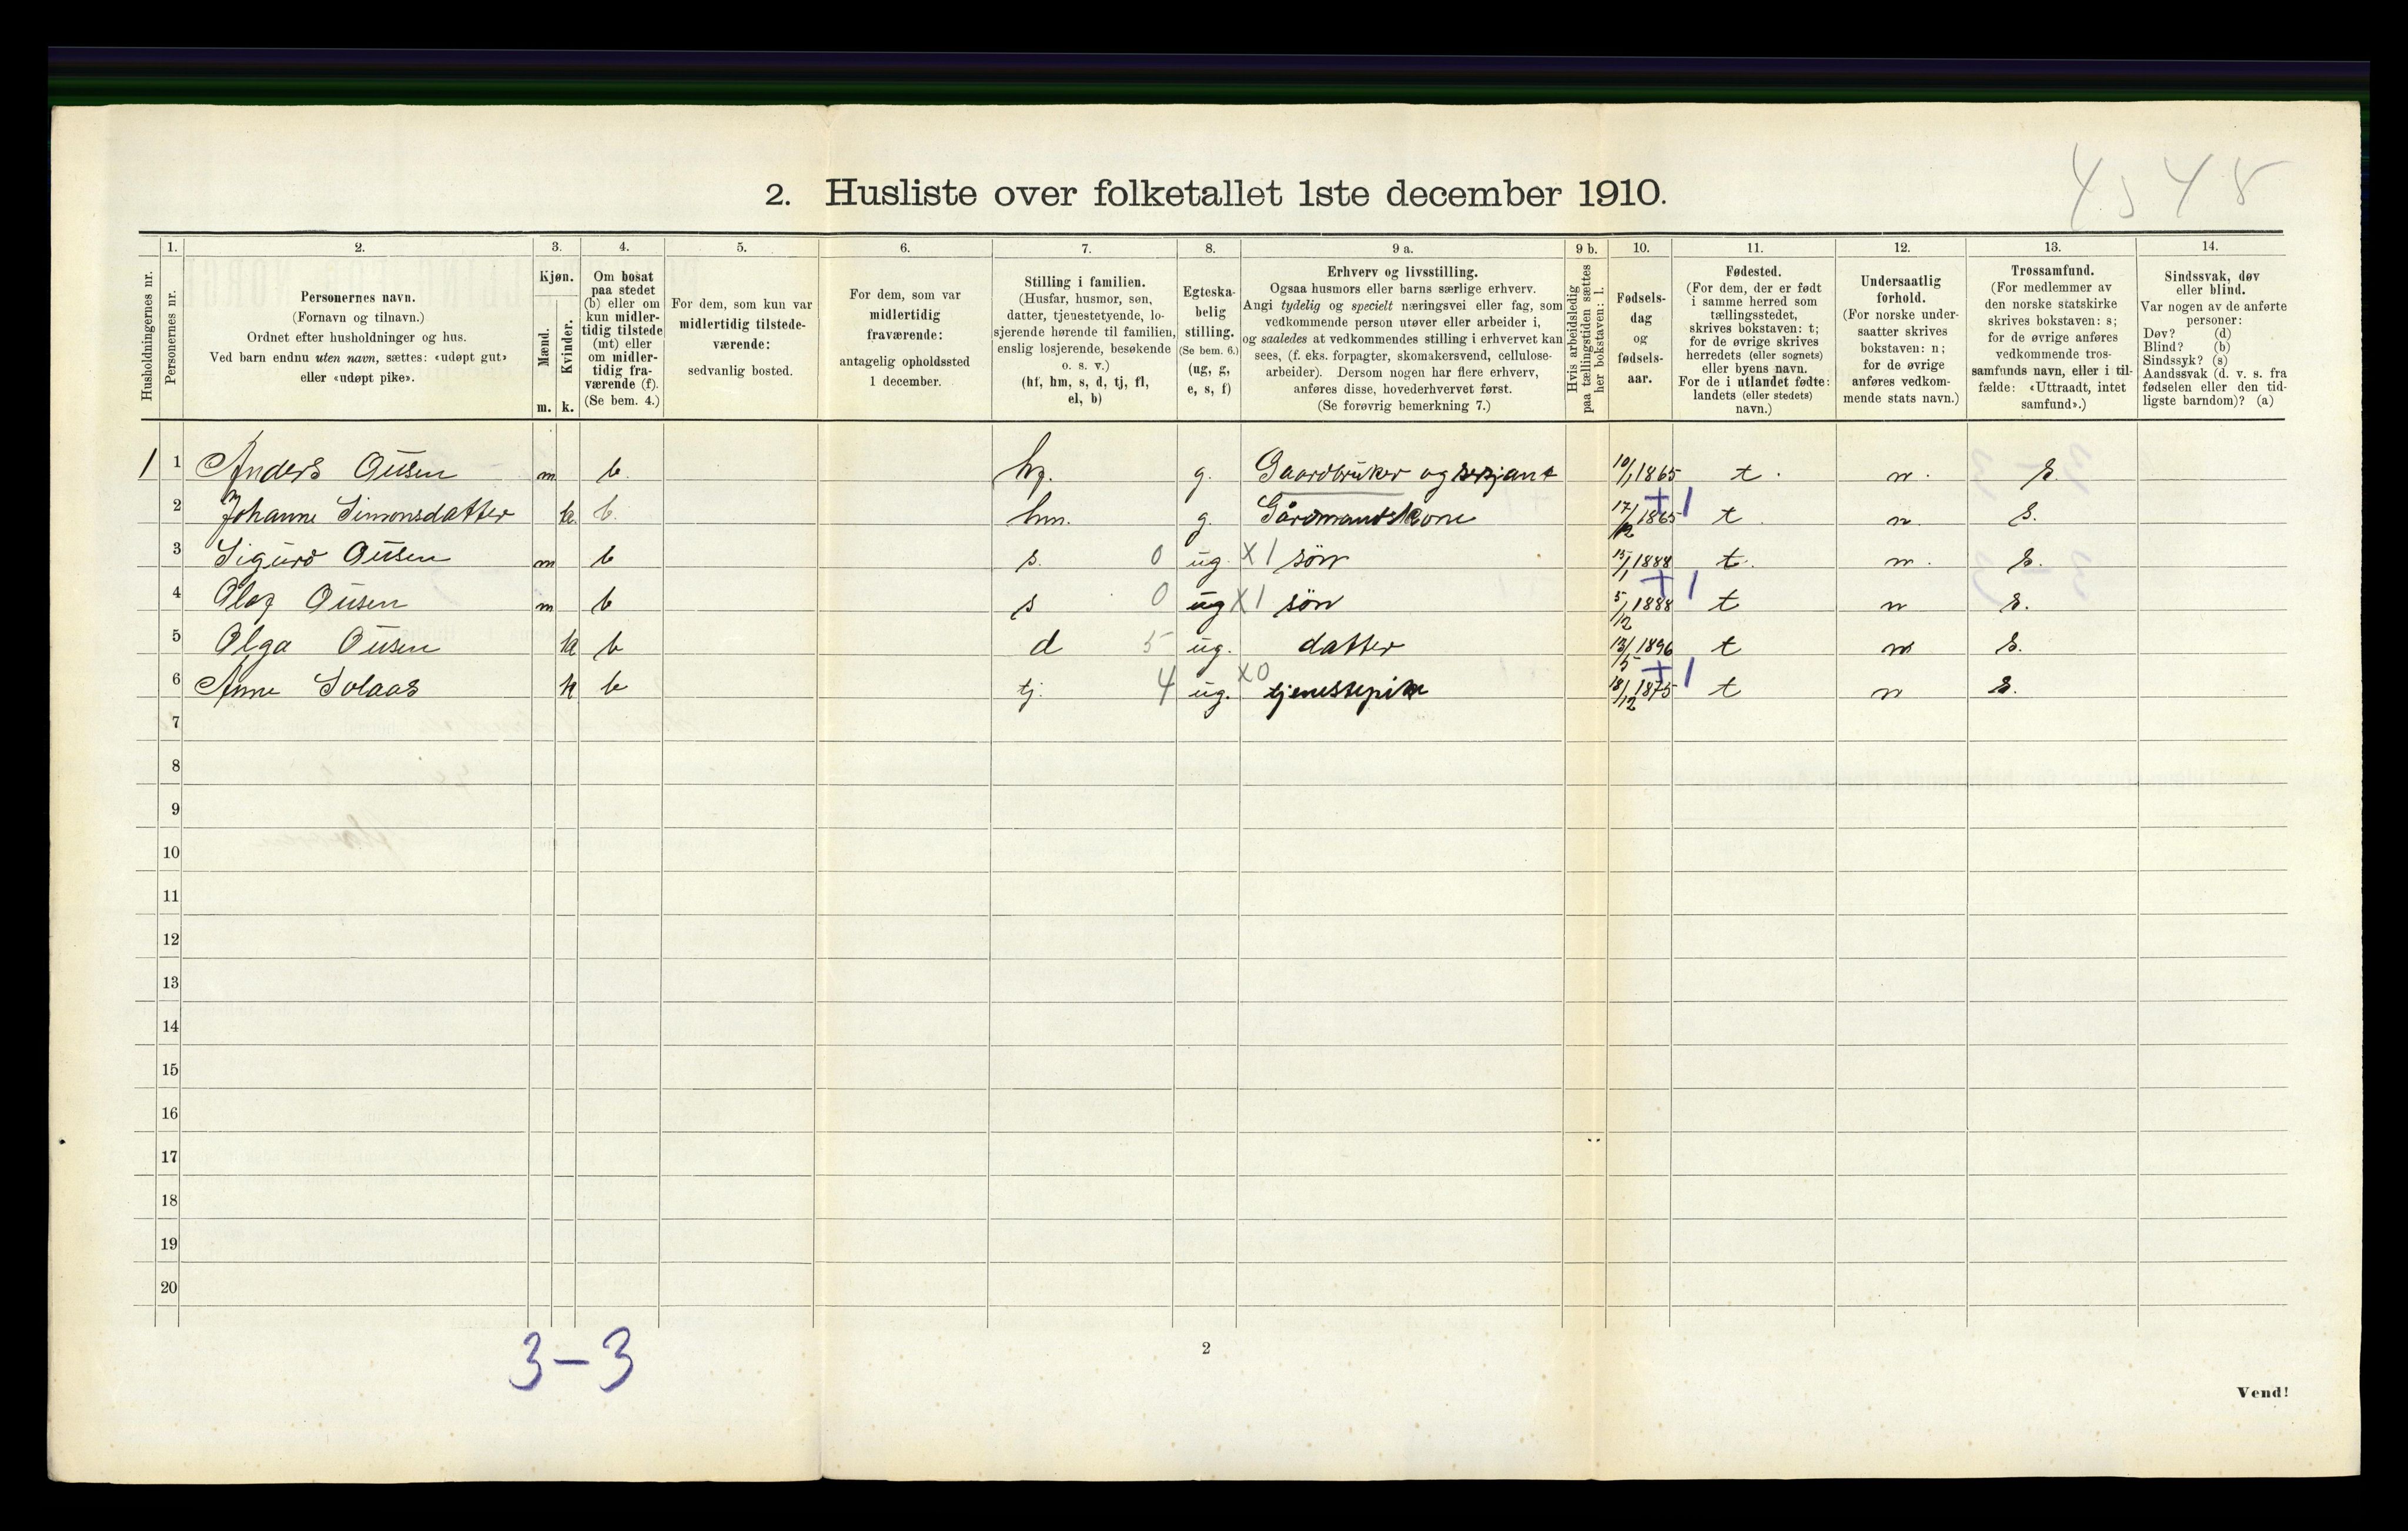 4548
2. Husliste over folketallet 1ste december 1910.
Husholdningernes nr.
1.
Personernes nr.
2.
Personernes navn.
(Fornavn og tilnavn.)
Ordnet efter husholdninger og hus.
Ved barn endnu uten navn, sættes: «udøpt gut»
eller «udøpt pike».
3.
Kjøn.
Mænd.
Kvinder.
m. k.
4.
Om bosat
paa stedet
(b) eller om
kun midler-
tidig tilstede
(mt) eller
om midler-
tidig fra-
værende (f).
(Se bem. 4.)
5.
For dem, som kun var
midlertidig tilstede-
værende:
sedvanlig bosted.
6.
For dem, som var
midlertidig
fraværende:
antagelig opholdssted
1 december.
7.
Stilling i familien.
(Husfar, husmor, søn,
datter, tjenestetyende, lo-
sjerende hørende til familien,
enslig losjerende, besøkende
o. s. v.)
(hf, hm, s, d, tj, fl,
el, b)
8.
Egteska-
belig
stilling.
(Se bem. 6.)
(ug, g,
e, s, f)
9 a.
Erhverv og livsstilling.
Ogsaa husmors eller barns særlige erhverv.
Angi tydelig og specielt næringsvei eller fag, som
vedkommende person utøver eller arbeider i,
og saaledes at vedkommendes stilling i erhvervet kan
sees, (f. eks. forpagter, skomakersvend, cellulose-
arbeider). Dersom nogen har flere erhverv,
anføres disse, hovederhvervet først.
(Se forøvrig bemerkning 7.)
9 b.
Hvis arbeidsledig
paa tællingstiden sættes
her bokstaven: l.
10.
Fødsels-
dag
og
fødsels-
aar.
11.
Fødested.
(For dem, der er født
i samme herred som
tællingsstedet,
skrives bokstaven: t;
for de øvrige skrives
herredets (eller sognets)
eller byens navn.
For de i utlandet fødte:
landets (eller stedets)
navn.)
12.
Undersaatlig
forhold.
(For norske under-
saatter skrives
bokstaven: n;
for de øvrige
anføres vedkom-
mende stats navn.)
13.
Trossamfund.
(For medlemmer av
den norske statskirke
skrives bokstaven: s;
for de øvrige anføres
vedkommende tros-
samfunds navn, eller i til-
fælde: «Uttraadt, intet
samfund».)
14.
Sindssvak, døv
eller blind.
Var nogen av de anførte
personer:
Døv? (d)
Blind? (b)
Sindssyk? (s)
Aandssvak (d. v. s. fra
fødselen eller den tid-
ligste barndom)? (a)
1 1 Anders Olisen m b. hf. g. Gaardbruker og serjant 10/1 1865 t. n. s.
2 Johanne Simonsdatter k b. hm. g. Gårdmandskone 17/12 1865 +1 t. n. s.
3 Sigurd Olisen m b s. 0 ug. X1 søn 15/1 1888 t. n. s.
4 Olaf Olisen m b s 0 ug X1 søn 5/12 1888 +1 t n s.
5 Olga Olisen k b d 5 ug. datter 13/5 1896 t n s.
6 Anne Solaas k b tj. 4 ug. X0 tjenestepike 18/12 1875 +1 t n s.
7
8
9
10
11
12
13
14
15
16
17
18
19
20
3-3
2
Vend!